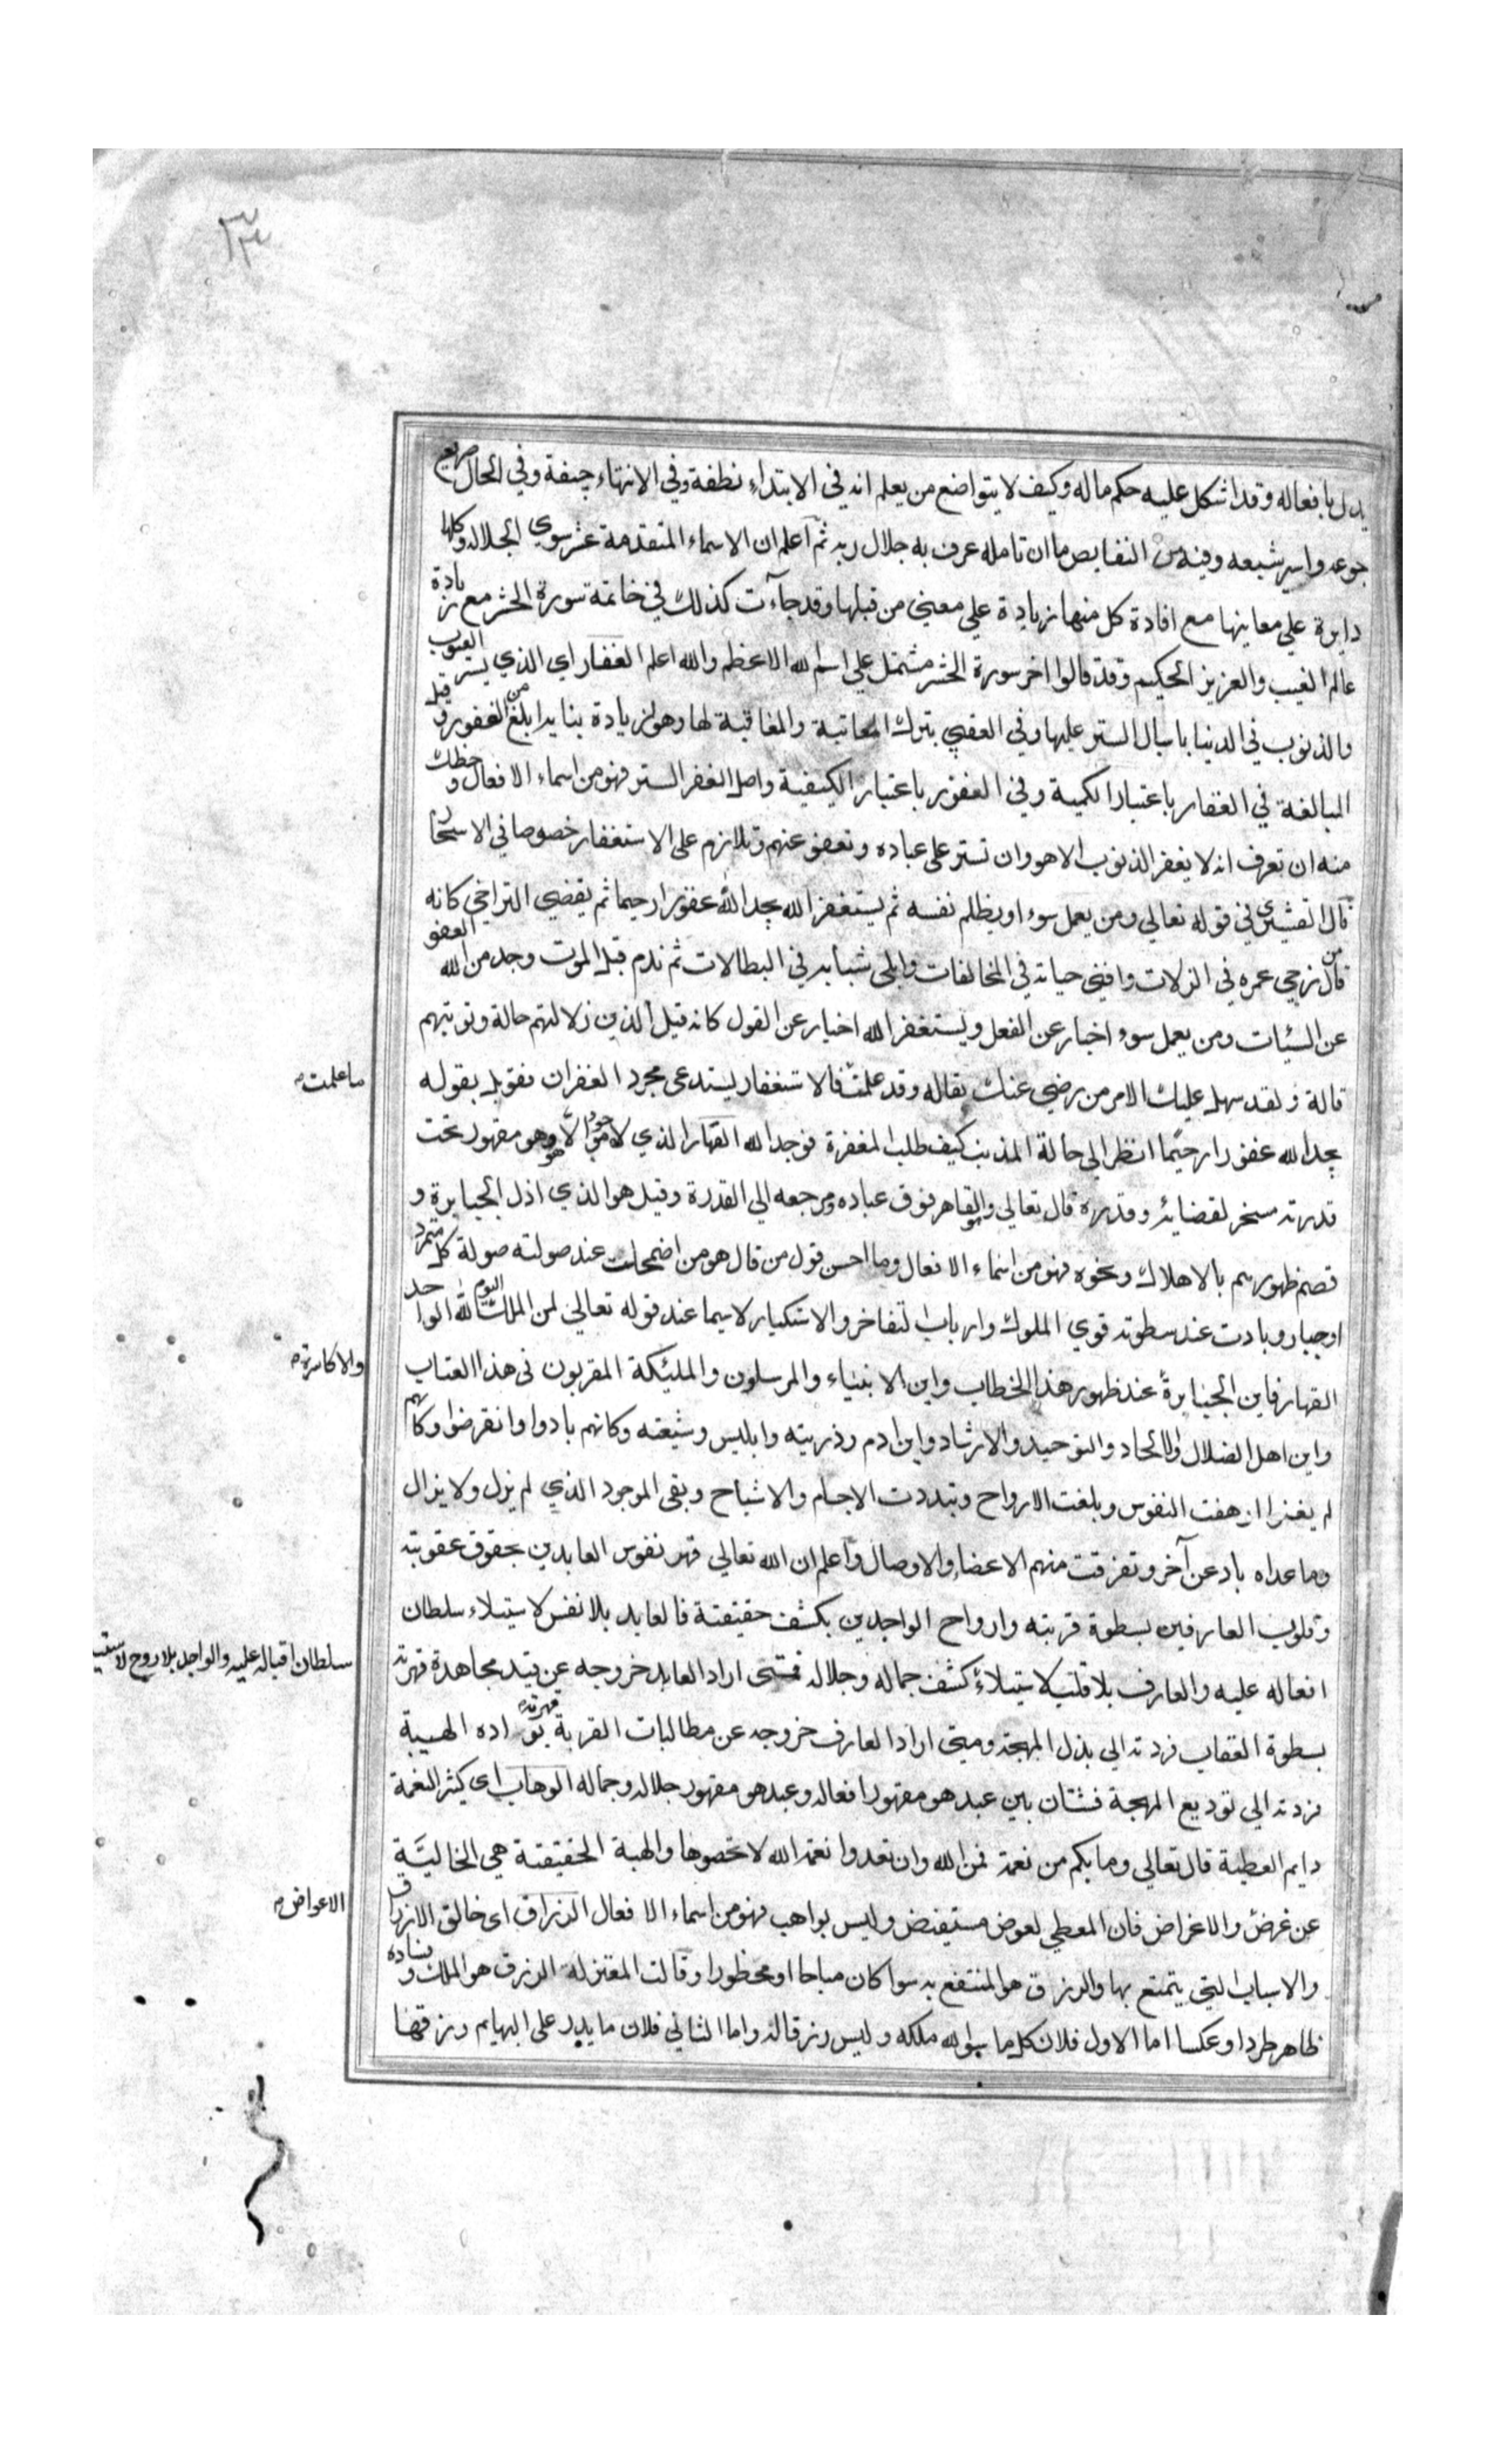 ٣٣
يدل بافعاله وقد اشكل عليه حكم ماله وكيف لا يتواضع من يعلم انه في الابتداء نطفة وفي الانتهاء جيفة وفي الحال صريع
جوعه واسير شبعه وفيه من النقايص ما ان تامله عرف به جلال ربه ثم اعلم ان الاسماء المتقدمة عشر سوي الجلاله وكلها
دايرة علي معاينها مع افادة كل منها زيادة علي معني من قبلها وقد جاءت كذلك في خاتمة سورة الحشر مع زيادة
عالم الغيب والعزيز الحكيم وقد قالوا اخر سورة الحشر مشتمل علي اسم الله الاعظم والله اعلم الغفار اي الذي يستر العيوب
والذنوب في الدنيا باسبال الستر عليها وفي العقبي بترك المعاتبة والمعاقبة لها وهو لزيادة بنايه ابلغ من الغفور وقيل
المبالغة في الغفار باعتبار الكمية وفي الغفور باعتبار الكيفية واصل الغفر الستر فهو من اسماء الافعال وحظك
منه ان تعرف انه لا يغفر الذنوب الا هو وان تستر على عباده وتعفو عنهم وتلازم على الاستغفار خصوصا في الاسحار
قال القشيري في قوله تعالي ومن يعمل سوء او يظلم نفسه ثم يستغفر الله يجد الله غفورا رحيما ثم يقضي التراخي كانه
قال من زجي عمره في الزلات وافني حياته في المخالفات وابلى شبابه في البطالات ثم ندم قبل الموت وجد من الله العفو
عن السيئات ومن يعمل سوء اخبار عن الفعل ويستغفر الله اخبار عن القول كانه قيل الذين زلالتهم حالة وتوبتهم
قالة ولقد سهل عليك الامر من رضي عنك بقاله وقد علمت فالاستغفار يستدعى مجرد الغفران فقوبل بقوله
ما علمت
يجد الله غفورا رحيما انظر الي حالة المذنب كيف طلب المغفرة فوجد الله القهار الذي لا موجود الا وهو مقهور تحت
قدرته مسخر لقضائه وقدره قال تعالي وهو القاهر فوق عباده ومرجعه الي القدرة وقيل هو الذي اذل الجبابرة و
قصم ظهورهم بالاهلاك ونحوه فهو من اسماء الافعال وما احسن قول من قال هو من اضمحلت عند صولته صولة كل متمرد
او جبار وبادت عند سطوته قوي الملوك وارباب التفاخر والاستكبار لا سيما عند قوله تعالي لمن الملك اليوم لله الواحد
القهار فاين الجبابرة عند ظهور هذا الخطاب واين الانبياء والمرسلون والمليكة المقربون في هذا العتاب
والاكاسرة
واين اهل الضلال والالحاد والتوحيد والارشاد واين ادم وذريته وابليس وشيعته وكانهم بادوا وانقرضوا وكانهم
لم يغنوا زهقت النفوس وبلغت الارواح وتبددت الاجسام والاشباح وبقي الموجود الذي لم يزل ولا يزال
وما عداه باد عن آخر وتفرقت منهم الاعضاء والاوصال واعلم ان الله تعالي قهر نفوس العابدين بحقوق عقوبته
وقلوب العارفين بسطوة قربته وارواح الواجدين بكشف حقيقته فالعابد بلا نفس لاستيلاء سلطان
افعاله عليه والعارف بلا قلب لاستيلاء كشف جماله وجلاله فمتى اراد العابد خروجه عن قيد مجاهدة قهرته
سلطان اقباله عليه والواجد بلا روح لاستيلاء
بسطوة العقاب فردته الي بذل المهجة ومتي اراد العارف خروجه عن مطالبات القربة قهرته بواده الهيبة
فردته الي توديع المهجة فشتان بين عبد هو مقهور افعاله وعبد هو مقهور جلاله وجماله الوهاب اي كثير النعمة
دايم العطية قال تعالي وما بكم من نعمة فمن الله وان تعدوا نعمة الله لا تحصوها والهبة الحقيقتة هي الخاليَّة
عن غرض والاغراض فان المعطي لعوض مستيفض وليس بواهب فهو من اسماء الافعال الرزاق اي خالق الارزاق
الاعواض
والاسباب التي يتمتع بها والرزق هو المنتفع به سوا كان مباحا او محظورا وقالت المعتزلة الرزق هو الملك وفساده
ظاهر طردا وعكسا اما الاول فلان كل ما سوا لله ملكه وليس رزقا له واما الثاني فلان ما يدر على البهايم رزقها